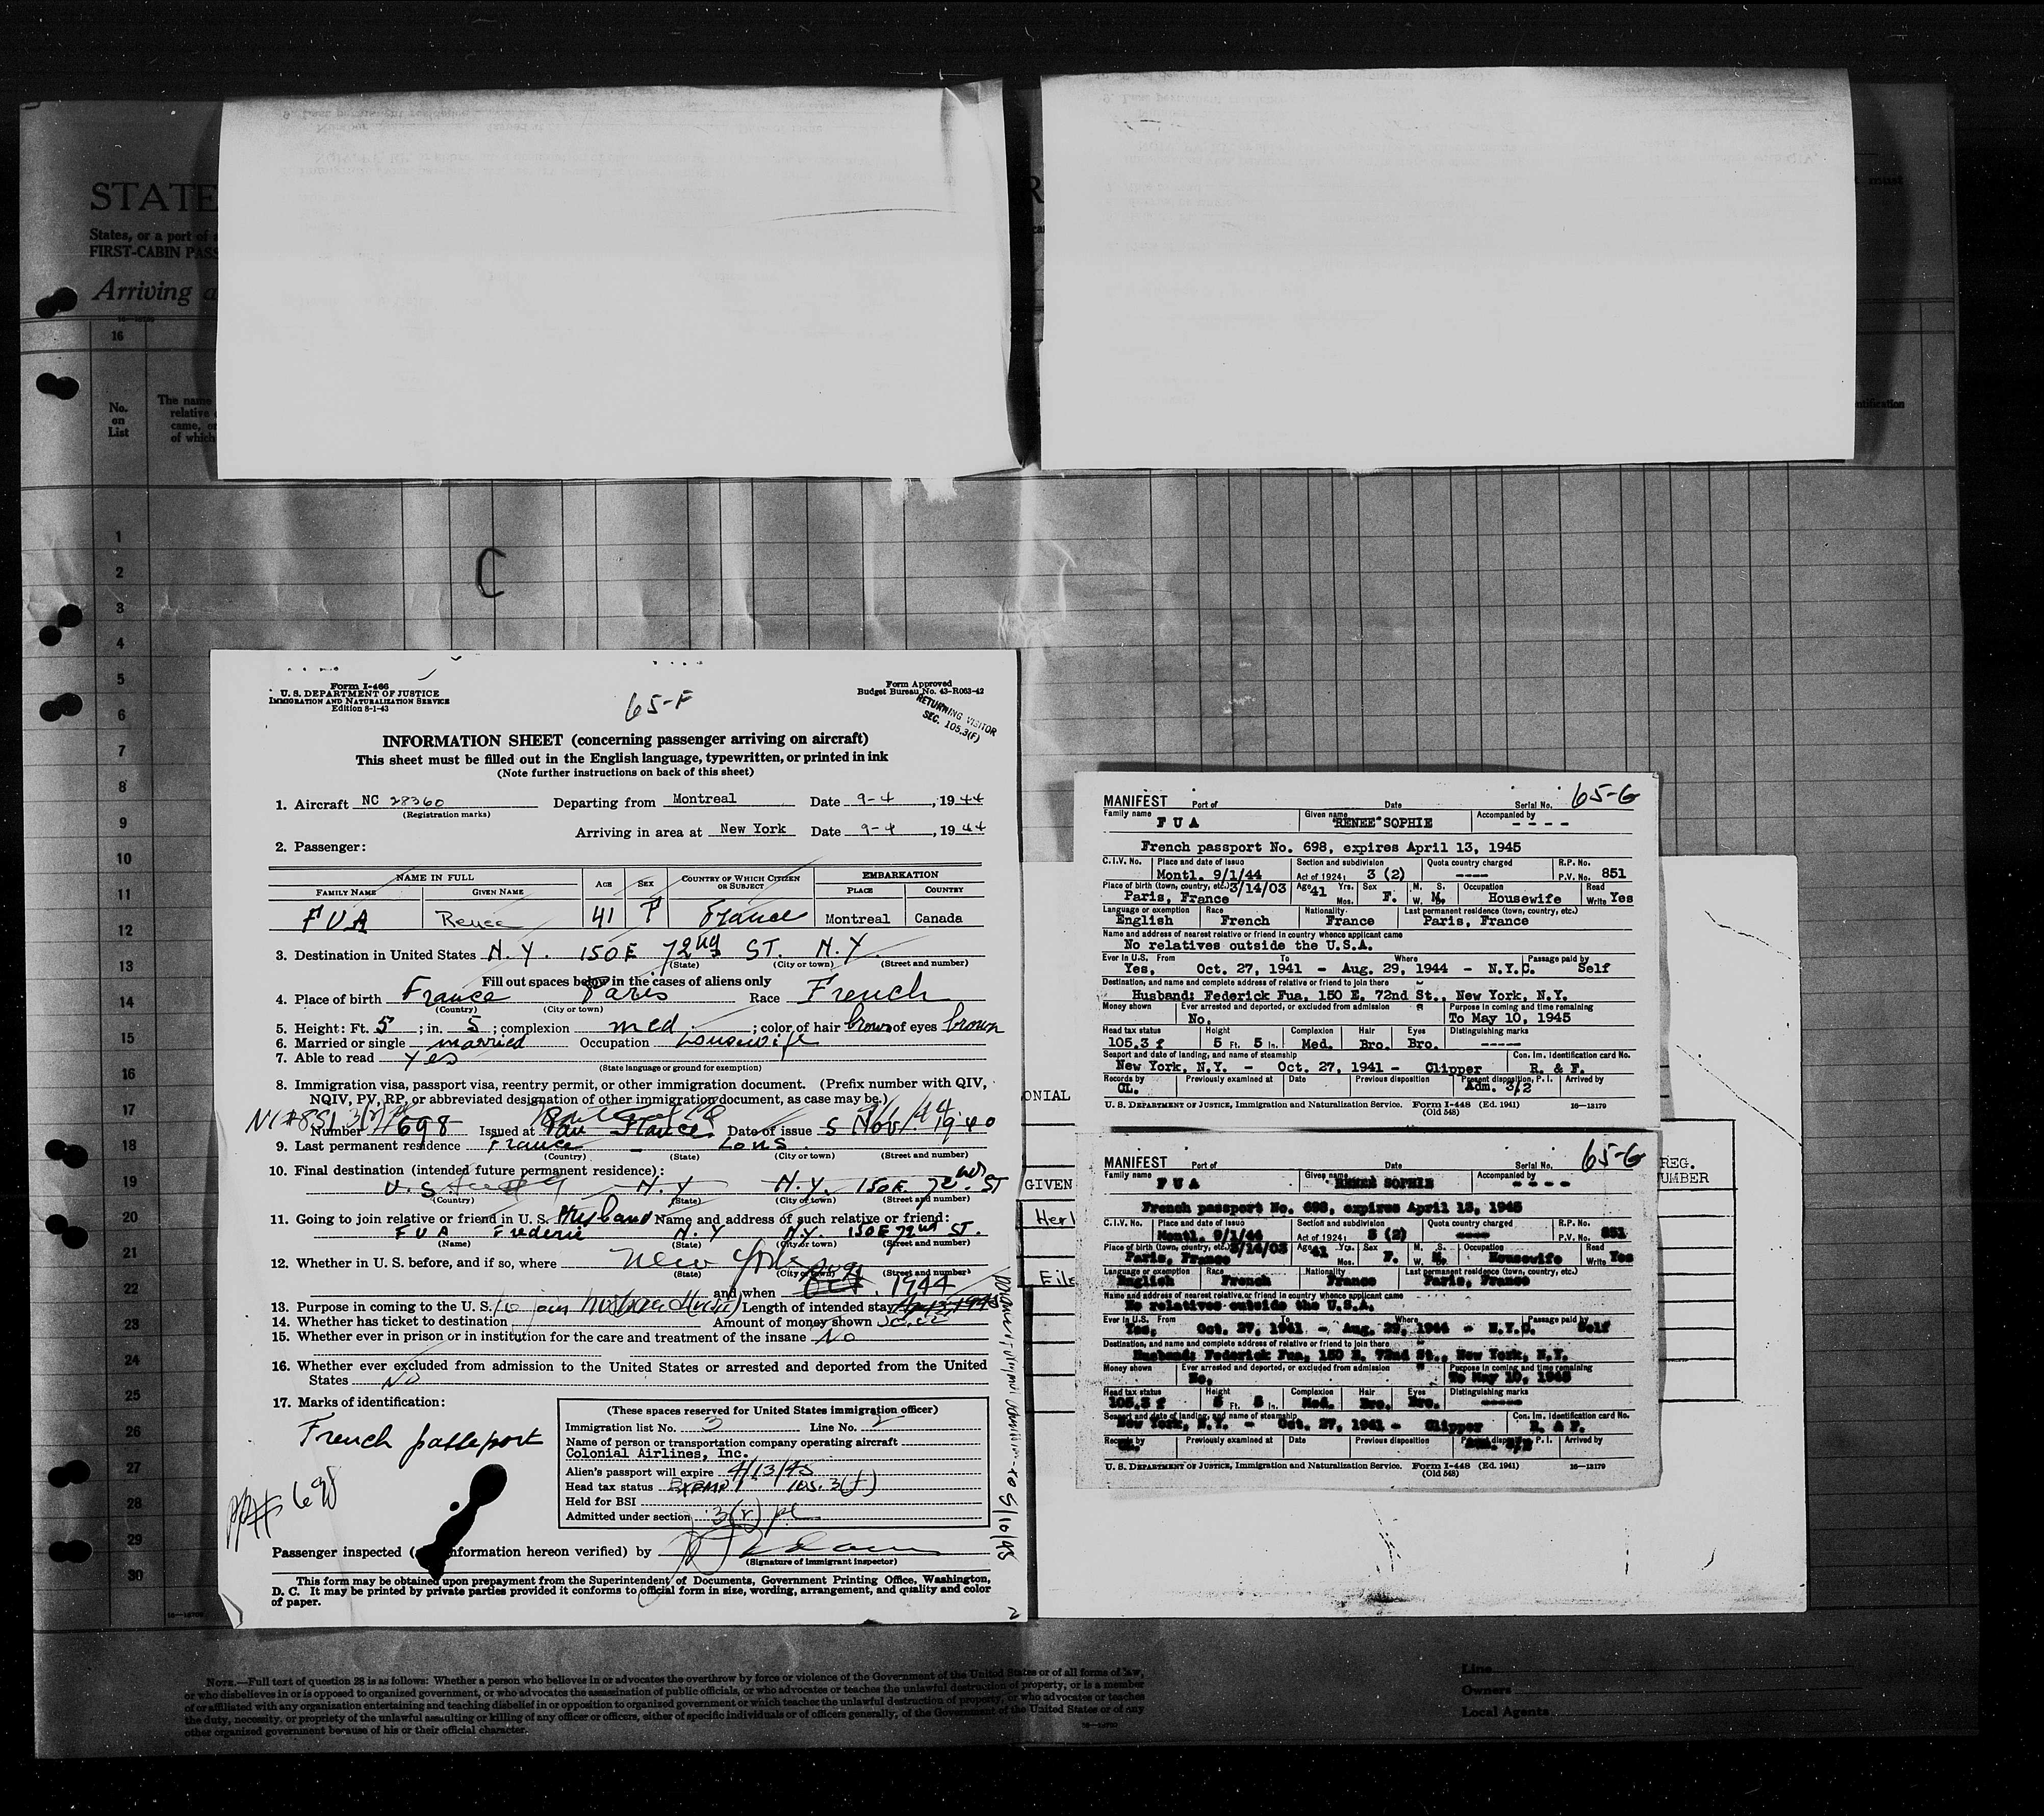 STATE
States, or a port of
FIRST-CABIN PASS
Arriving a
16
No.
on
List
The name
relative
came, or
of which
must
ntification
C
1
2
3
4
5
6
7
8
9
10
11
12
13
14
15
16
17
18
19
20
21
22
23
24
25
26
27
28
29
30
Form I-466
U. S. DEPARTMENT OF JUSTICE
IMMIGRATION AND NATURALIZATION SERVICE
Edition 8-1-43
65-F
Form Approved
Budget Bureau No. 43-R063-42
RETURNING VISITOR
SEC. 105.3(F)
INFORMATION SHEET (concerning passenger arriving on aircraft)
This sheet must be filled out in the English language, typewritten, or printed in ink
(Note further instructions on back of this sheet)
1. Aircraft NC 28360 Departing from Montreal Date 9-4, 1944
(Registration marks)
Arriving in area at New York Date 9-4, 1944
2. Passenger:
NAME IN FULL AGE SEX COUNTRY OF WHICH CITIZEN OR SUBJECT EMBARKATION
FAMILY NAME GIVEN NAME PLACE COUNTRY
FUA Renee 41 F France Montreal Canada
3. Destination in United States N.Y. 150 E 72nd ST. N.Y
(State) (City or town) (Street and number)
Fill out spaces below in the cases of aliens only
4. Place of birth France Paris Race French
(Country) (City or town)
5. Height: Ft. 5; in. 5; complexion med; color of hair brown of eyes brown
6. Married or single married Occupation housewife
7. Able to read yes
(State language or ground for exemption)
8. Immigration visa, passport visa, reentry permit, or other immigration document. (Prefix number with QIV,
NQIV, PV, RP, or abbreviated designation of other immigration document, as case may be.)
Number 698 Issued at Date of issue 5 Nov 1940
9. Last permanent residence France
(Country) (State) (City or town) (Street and number)
10. Final destination (intended future permanent residence):
U.S. N.Y N.Y. 150 E. 72nd ST
(Country) (State) (City or town) (Street and number)
11. Going to join relative or friend in U. S. Husband Name and address of such relative or friend:
FUA Frederic N.Y N.Y. 150 E 72nd ST.
(Name) (State) (City or town) (Street and number)
12. Whether in U.S. before, and if so, where New York
(State) (City or town) (Street and number)
and when 1944
13. Purpose in coming to the U. S. to join husband Length of intended stay
14. Whether has ticket to destination Amount of money shown
15. Whether ever in prison or in institution for the care and treatment of the insane No
16. Whether ever excluded from admission to the United States or arrested and deported from the United
States No
17. Marks of identification:
French passeport
pp# 698
(These spaces reserved for United States immigration officer)
Immigration list No. 3 Line No. 2
Name of person or transportation company operating aircraft
Colonial Airlines, Inc.
Alien's passport will expire 4/13/45
Head tax status 105.3(f)
Held for BSI
Admitted under section 3(2)
to 5/10/45
Passenger inspected (information hereon verified) by
(Signature of immigrant inspector)
This form may be obtained upon prepayment from the Superintendent of Documents, Government Printing Office, Washington,
D. C. It may be printed by private parties provided it conforms to official form in size, wording, arrangement, and quality and color
of paper.
2
MANIFEST Port of Date Serial No. 65-G
Family name Given name Accompanied by
FUA "RENEE" SOPHIE - - - -
French passport No. 698, expires April 13, 1945
C.I.V. No. Place and date of issue Section and subdivision Quota country charged R.P. No.
Montl. 9/1/44 Act of 1924: 3 (2) ---- P.V. No. 851
Place of birth (town, country, etc.) 3/14/03 Age 41 Yrs. Mos. Sex M. S. W. D. Occupation Read
Paris, France F. M. Housewife Write Yes
Language or exemption Race Nationality Last permanent residence (town, country, etc.)
English French France Paris, France
Name and address of nearest relative or friend in country whence applicant came
No relatives outside the U.S.A.
Ever in U.S. From To Where Passage paid by
Yes, Oct. 27, 1941 - Aug. 29, 1944 - N.Y.C. Self
Destination, and name and complete address of relative or friend to join there
Husband: Federick Fua, 150 E. 72nd St., New York, N.Y.
Money shown Ever arrested and deported, or excluded from admission Purpose in coming and time remaining
No. To May 10, 1945
Head tax status Height Complexion Hair Eyes Distinguishing marks
105.3 f 5 Ft. 5 In. Med. Bro. Bro. -----
Seaport and date of landing, and name of steamship Con. Im. Identification card No.
New York, N.Y. - Oct. 27, 1941 - Clipper R. & F.
Records by Previously examined at Date Previous disposition Present disposition, P. I. Arrived by
GL. Adm. 3/2
U. S. DEPARTMENT OF JUSTICE, Immigration and Naturalization Service. Form I-448 (Ed. 1941) 16-13179
(Old 548)
MANIFEST Port of Date Serial No. 65-G
Family name Given name Accompanied by
FUA "RENEE SOPHIE - - - -
French passport No. 698, expires April 13, 1945
C.I.V. No. Place and date of issue Section and subdivision Quota country charged R.P. No.
Montl. 9/1/44 Act of 1924: 3 (2) ---- P.V. No. 851
Place of birth (town, country, etc.) 3/14/03 Age 41 Yrs. Mos. Sex M. S. W. D. Occupation Read
Paris, France F. M. Housewife Write Yes
Language or exemption Race Nationality Last permanent residence (town, country, etc.)
English French France Paris, France
Name and address of nearest relative or friend in country whence applicant came
No relatives outside the U.S.A.
Ever in U.S. From To Where Passage paid by
Yes, Oct. 27, 1941 - Aug. 29, 1944 - N.Y.C. Self
Destination, and name and complete address of relative or friend to join there
Husband: Federick Fua, 150 E. 72nd St., New York, N.Y.
Money shown Ever arrested and deported, or excluded from admission Purpose in coming and time remaining
No. To May 10, 1945
Head tax status Height Complexion Hair Eyes Distinguishing marks
105.3 f 5 Ft. 5 In. Med. Bro. Bro. -----
Seaport and date of landing, and name of steamship Con. Im. Identification card No.
New York, N.Y. - Oct. 27, 1941 - Clipper R. & F.
Records by Previously examined at Date Previous disposition Present disposition, P. I. Arrived by
GL. Adm. 3/2
U. S. DEPARTMENT OF JUSTICE, Immigration and Naturalization Service. Form I-448 (Ed. 1941) 16-13179
(Old 548)
ONIAL
GIVEN
REG.
UMBER
NOTE.—Full text of question 28 is as follows: Whether a person who believes in or advocates the overthrow by force or violence of the Government of the United States or of all forms of law,
or who disbelieves in or is opposed to organized government, or who advocates the assassination of public officials, or who advocates or teaches the unlawful destruction of property, or is a member
of or affiliated with any organization entertaining and teaching disbelief in or opposition to organized government or which teaches the unlawful destruction of property, or who advocates or teaches
the duty, necessity, or propriety of the unlawful assaulting or killing of any officer or officers, either of specific individuals or of officers generally, of the Government of the United States or of any
other organized government because of his or their official character.
Line
Owners
Local Agents